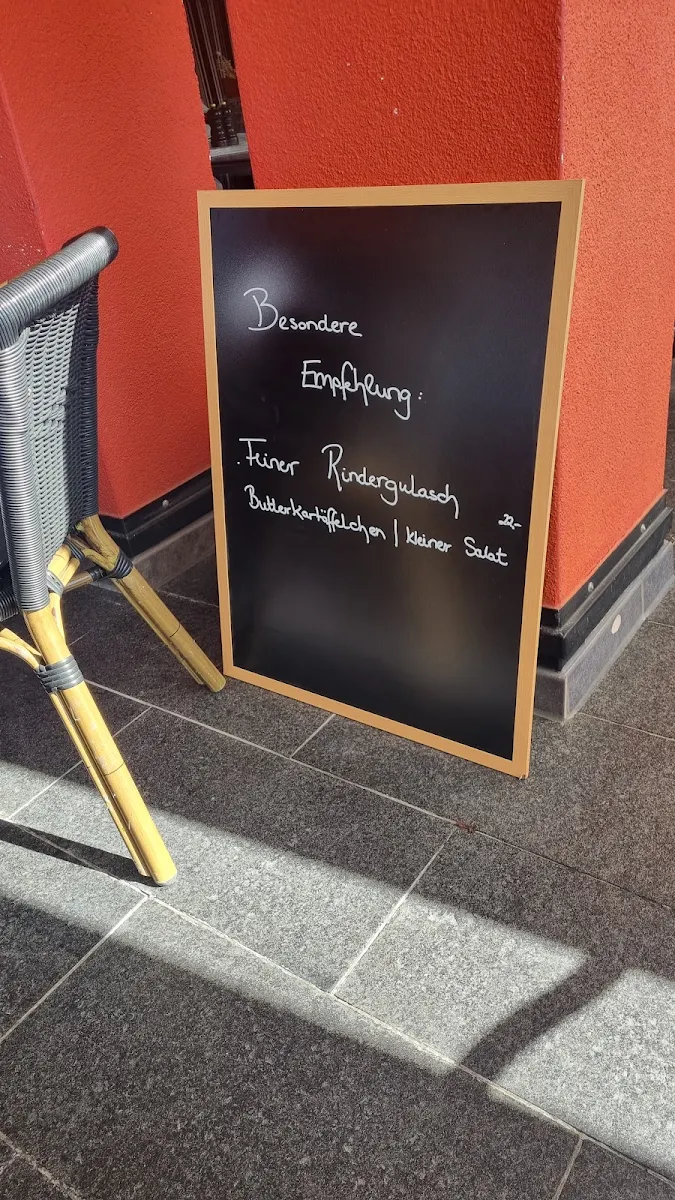 Besondere
Empfehlung:
. Feiner Rindergulasch
22,-
Butterkartöffelchen | kleiner Salat